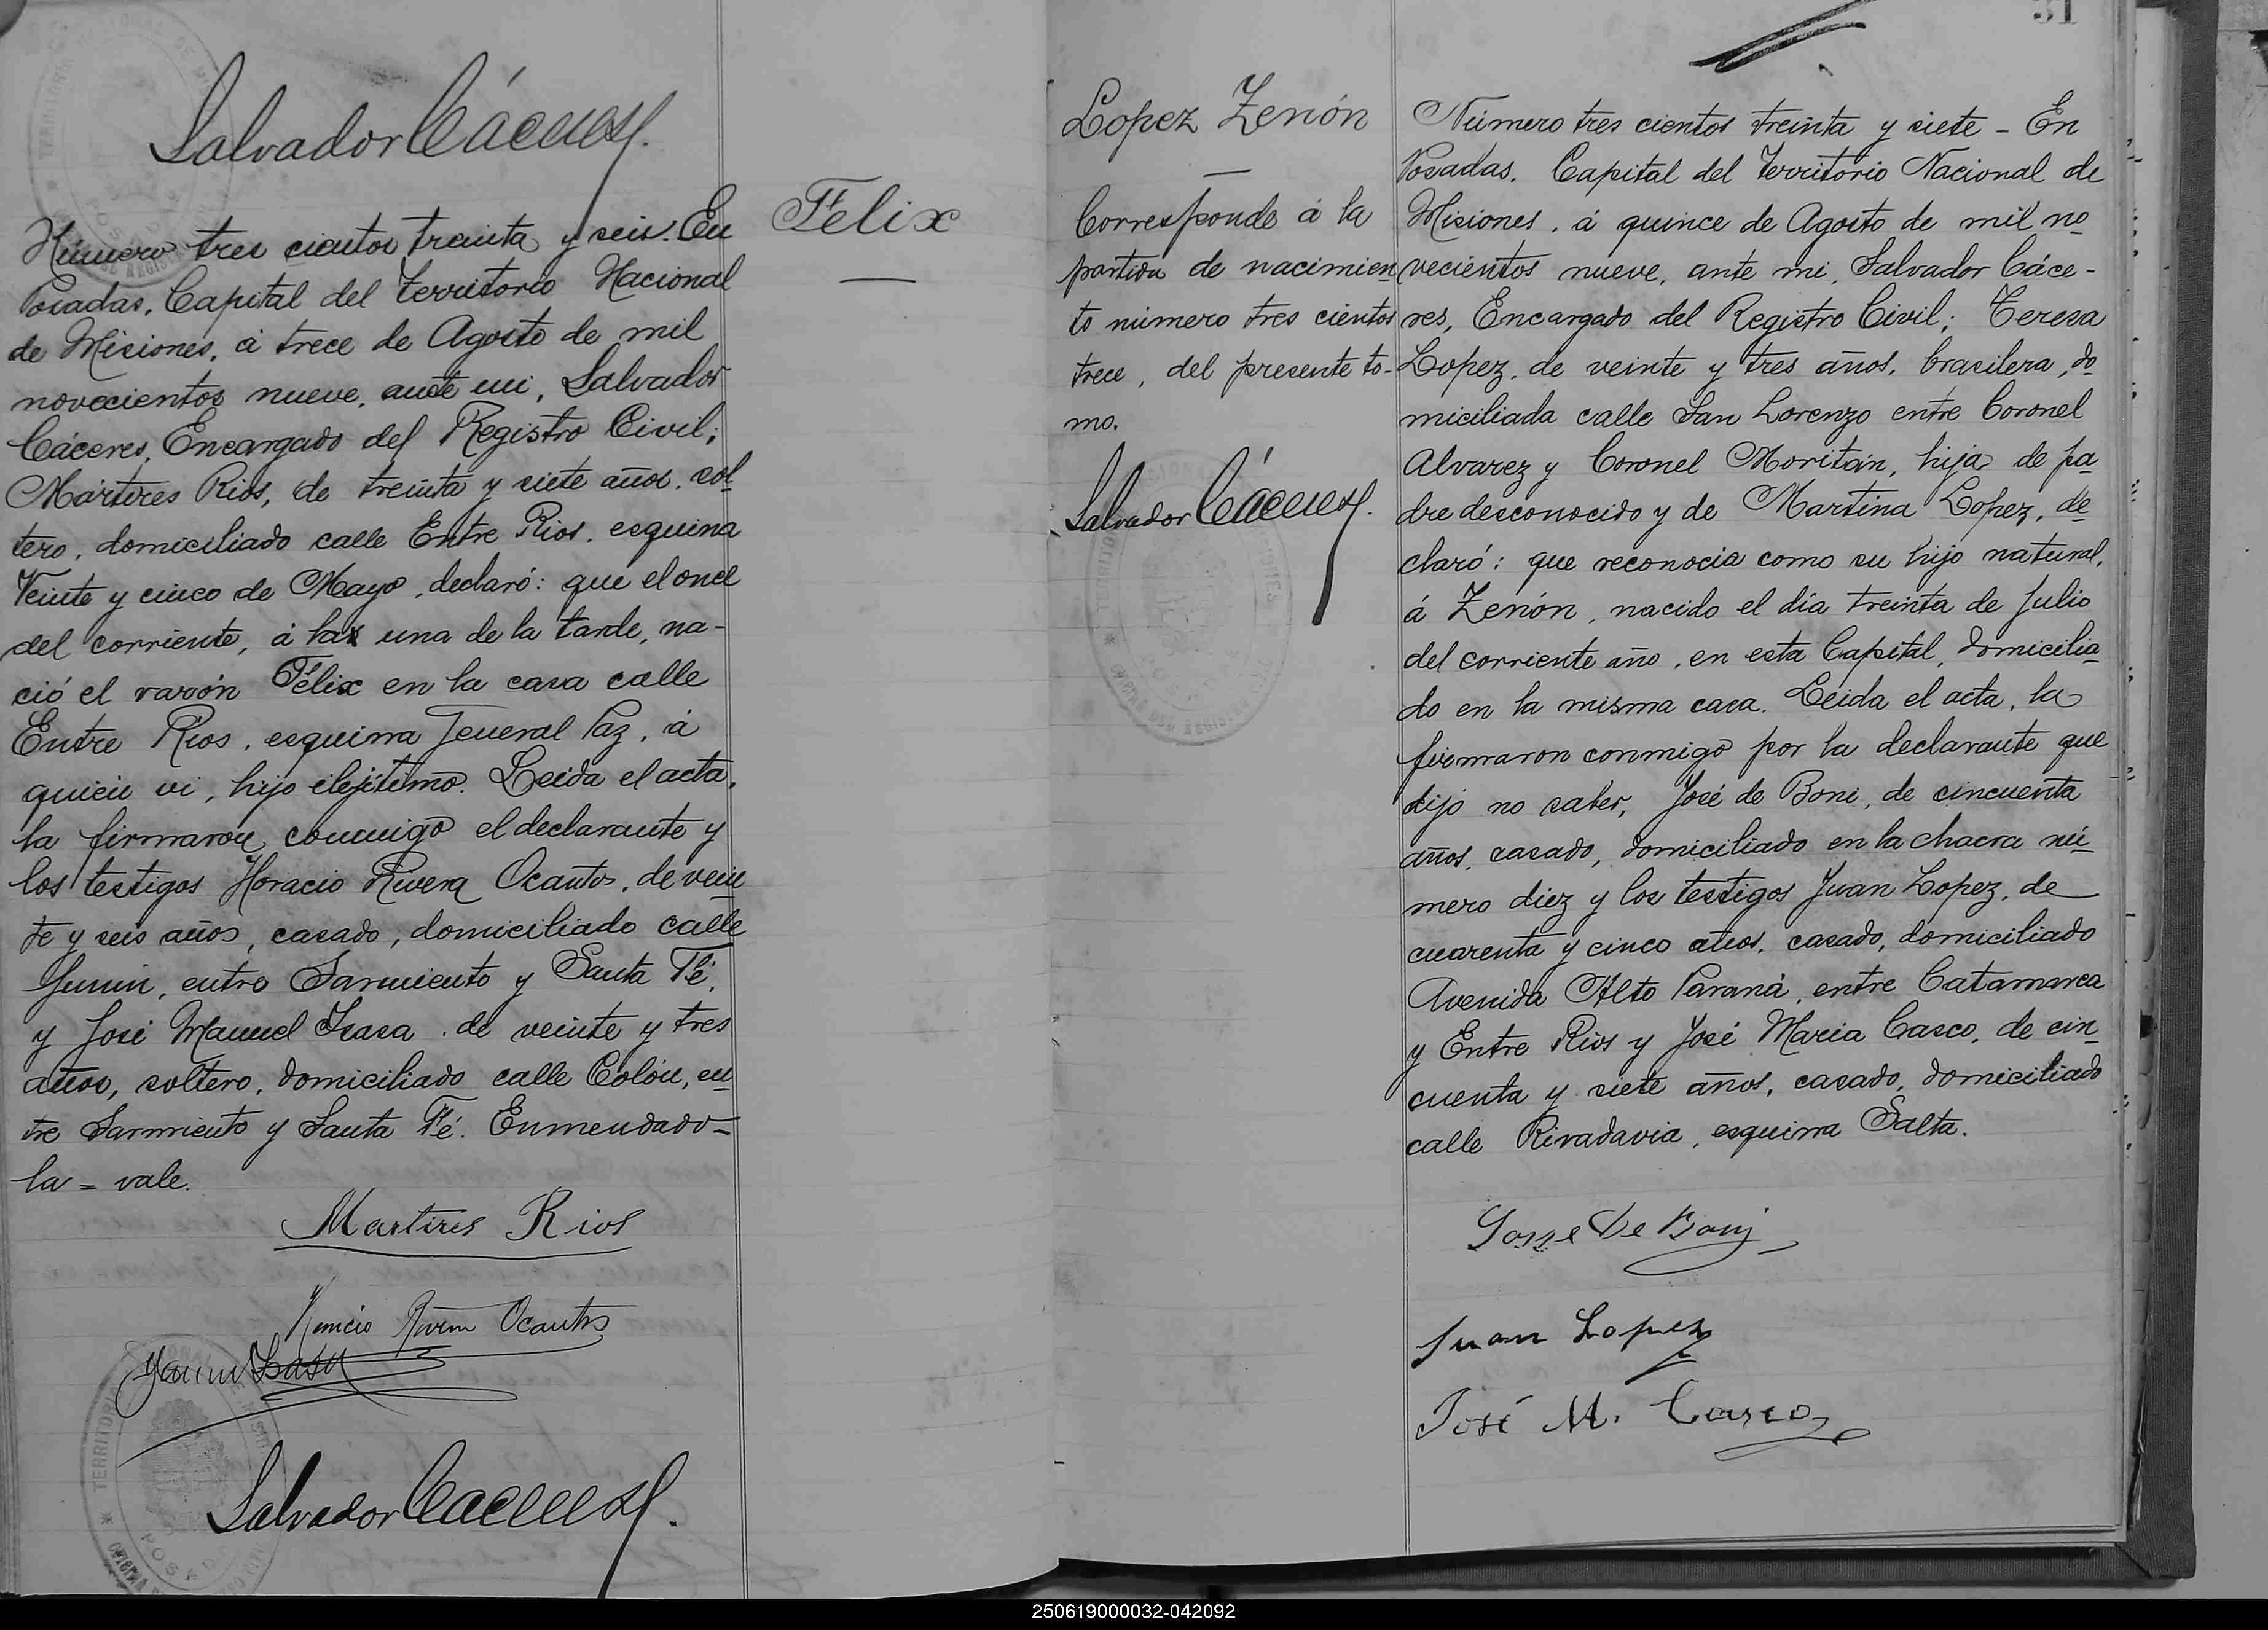 Salvador Cáceres.
Número tres cientos treinta y seis. En
Posadas, Capital del Territorio Nacional
de Misiones, á trece de Agosto de mil
novecientos nueve, ante mi, Salvador
Cáceres, Encargado del Registro Civil;
Mártires Rios, de treinta y siete años, sol-
tero, domiciliado calle Entre Rios, esquina
Veinte y cinco de Mayo, declaró: que el once
del corriente, á la una de la tarde, na-
ció el varón Félix en la casa calle
Entre Rios, esquina Jeneral Paz, á
quien vi, hijo ilejítimo. Leida el acta,
la firmaron conmigo el declarante y
los testigos Horacio Rivera Ocantos, de vein-
te y seis años, casado, domiciliado calle
Junin, entre Sarmiento y Santa Fé,
y José Manuel Isasa, de veinte y tres
años, soltero, domiciliado calle Colón, en-
tre Sarmiento y Santa Fé. Enmendado=
la = vale.
Martires Rios
Horacio Rivera Ocantos
Salvador Cáceres.
Felix
Lopez Zenón
Corresponde á la
partida de nacimien-
to número tres cientos
trece, del presente to-
mo.
Salvador Cáceres.
31
Número tres cientos treinta y siete - En
Posadas, Capital del Territorio Nacional de
Misiones, á quince de Agosto de mil no-
vecientos nueve, ante mi, Salvador Cáce-
res, Encargado del Registro Civil; Teresa
Lopez, de veinte y tres años, brasilera, do-
miciliada calle San Lorenzo entre Coronel
Alvarez y Coronel Moritán, hija de pa-
dre desconocido y de Martina Lopez, de-
claró: que reconocia como su hijo natural,
á Zenón, nacido el dia treinta de Julio
del corriente año, en esta Capital, domicilia-
do en la misma casa. Leida el acta, la
firmaron conmigo por la declarante que
dijo no saber, José de Boni, de cincuenta
años, casado, domiciliado en la chacra nú-
mero diez y los testigos Juan Lopez, de
cuarenta y cinco años, casado, domiciliado
Avenida Alto Paraná, entre Catamarca
y Entre Rios y José Maria Casco, de cin-
cuenta y siete años, casado, domiciliado
calle Rivadavia, esquina Salta.
Josse De Bonj
Juan Lopez
José M. Casco
250619000032-042092